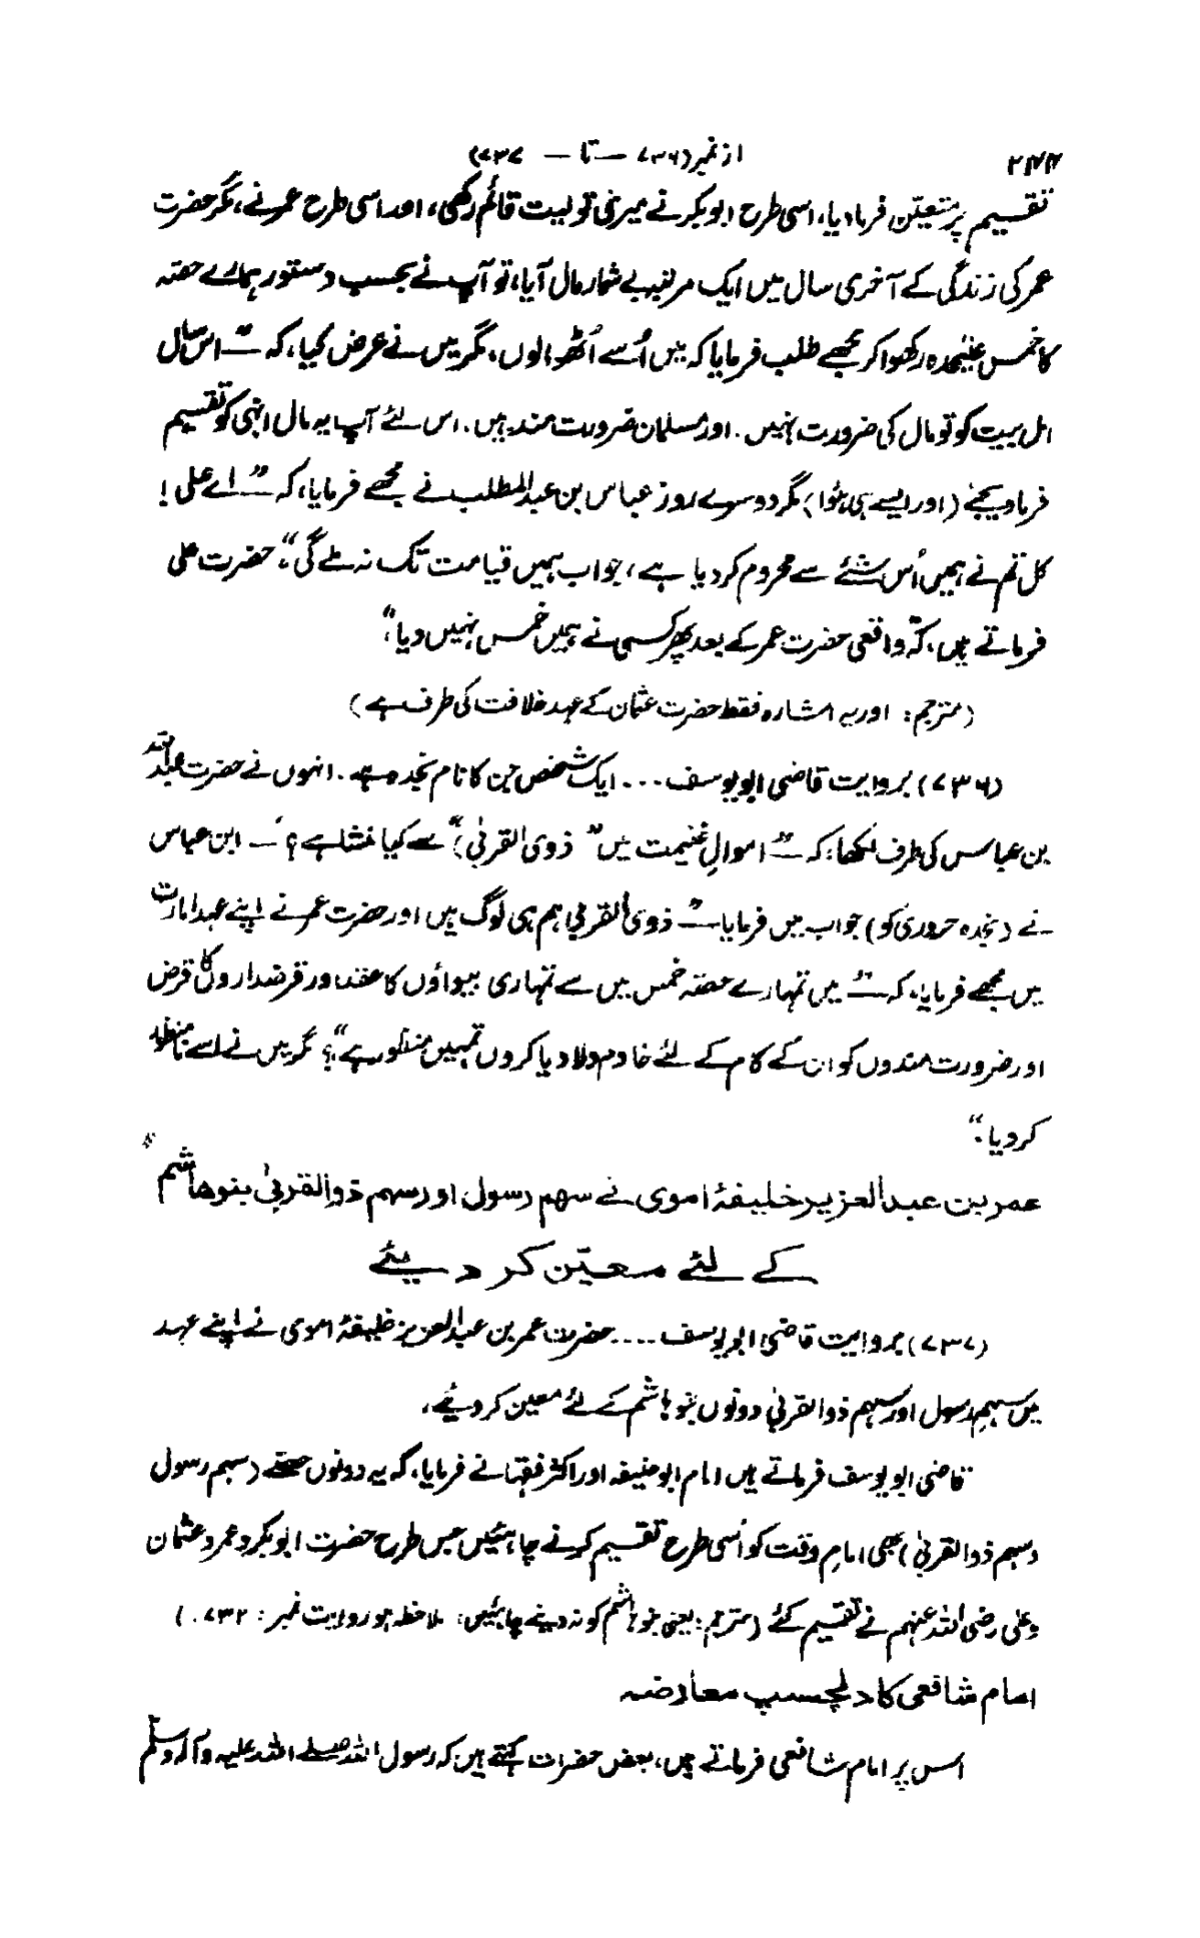 ۲۴۴ از نمبر (۷۳۶ — تا — ۷۳۷)
تقسیم پر متعیّن فرما دیا، اسی طرح ابوبکر نے میری تولیت قائم رکھی، اور اسی طرح عمر نے، مگر حضرت
عمر کی زندگی کے آخری سال میں ایک مرتبہ بے شمار مال آیا، تو آپ نے بحسب دستور ہمارے حصّہ
کا خمس علیٰحدہ رکھوا کر مجھے طلب فرمایا کہ میں اُسے اُٹھوا لوں، مگر میں نے عرض کیا، کہ — ”اس سال
اہل بیت کو تو مال کی ضرورت نہیں۔ اور مسلمان ضرورت مند ہیں۔ اس لئے آپ یہ مال انہی کو تقسیم
فرما دیجئے (اور ایسے ہی ہوا) مگر دوسرے روز عباس بن عبدالمطلب نے مجھے فرمایا، کہ — ”اے علی !
کل تم نے ہمیں اُس شئے سے محروم کر دیا ہے، جو اب ہمیں قیامت تک نہ ملے گی“۔ حضرت علی
فرماتے ہیں، کہ واقعی حضرت عمر کے بعد پھر کسی نے ہمیں خمس نہیں دیا“،
(مترجم: اور یہ اشارہ فقط حضرت عثمان کے عہد خلافت کی طرف ہے)
(۷۳۶) بروایت قاضی ابو یوسف ۔۔۔ ایک شخص جن کا نام نجدہ ہے۔ انہوں نے حضرت عبداللہ
بن عباس کی طرف لکھا، کہ — ”اموالِ غنیمت میں ”ذوی القربیٰ“ سے کیا منشا ہے؟ — ابن عباس
نے (نجدہ حروری کو) جواب میں فرمایا — ”ذوی القربیٰ ہم ہی لوگ ہیں اور حضرت عمر نے اپنے عہد امارت
میں مجھے فرمایا، کہ — ”میں تمہارے حصّہ خمس میں سے تمہاری بیواؤں کا عقد اور قرضداروں کا قرض
اور ضرورت مندوں کو ان کے کام کے لئے خادم دلا دیا کروں تمہیں منظور ہے“؟ مگر میں نے اسے نامنظور
کر دیا۔“
عمر بن عبدالعزیز خلیفۂ اموی نے سہم رسول اور سہم ذوالقربیٰ بنو ہاشم
کے لئے معیّن کر دیئے
(۷۳۷) بروایت قاضی ابو یوسف ۔۔۔۔ حضرت عمر بن عبدالعزیز خلیفۂ اموی نے اپنے عہد
میں سہمِ رسول اور سہم ذوالقربیٰ دونوں بنو ہاشم کے لئے معین کر دئیے،
قاضی ابو یوسف فرماتے ہیں امام ابو حنیفہ اور اکثر فقہا نے فرمایا، کہ یہ دونوں حصّے (سہم رسول
و سہم ذوالقربیٰ) بھی امامِ وقت کو اُسی طرح تقسیم کرنے چاہئیں جس طرح حضرت ابوبکر و عمر و عثمان
و علی رضی اللہ عنہم نے تقسیم کئے (مترجم: یعنی بنو ہاشم کو نہ دینے چاہئیں: ملاحظہ ہو روایت نمبر: ۷۳۲۔)
امام شافعی کا دلچسپ معارضہ
اس پر امام شافعی فرماتے ہیں، بعض حضرات کہتے ہیں کہ رسول اللہ صلے اللہ علیہ و آلہ وسلم